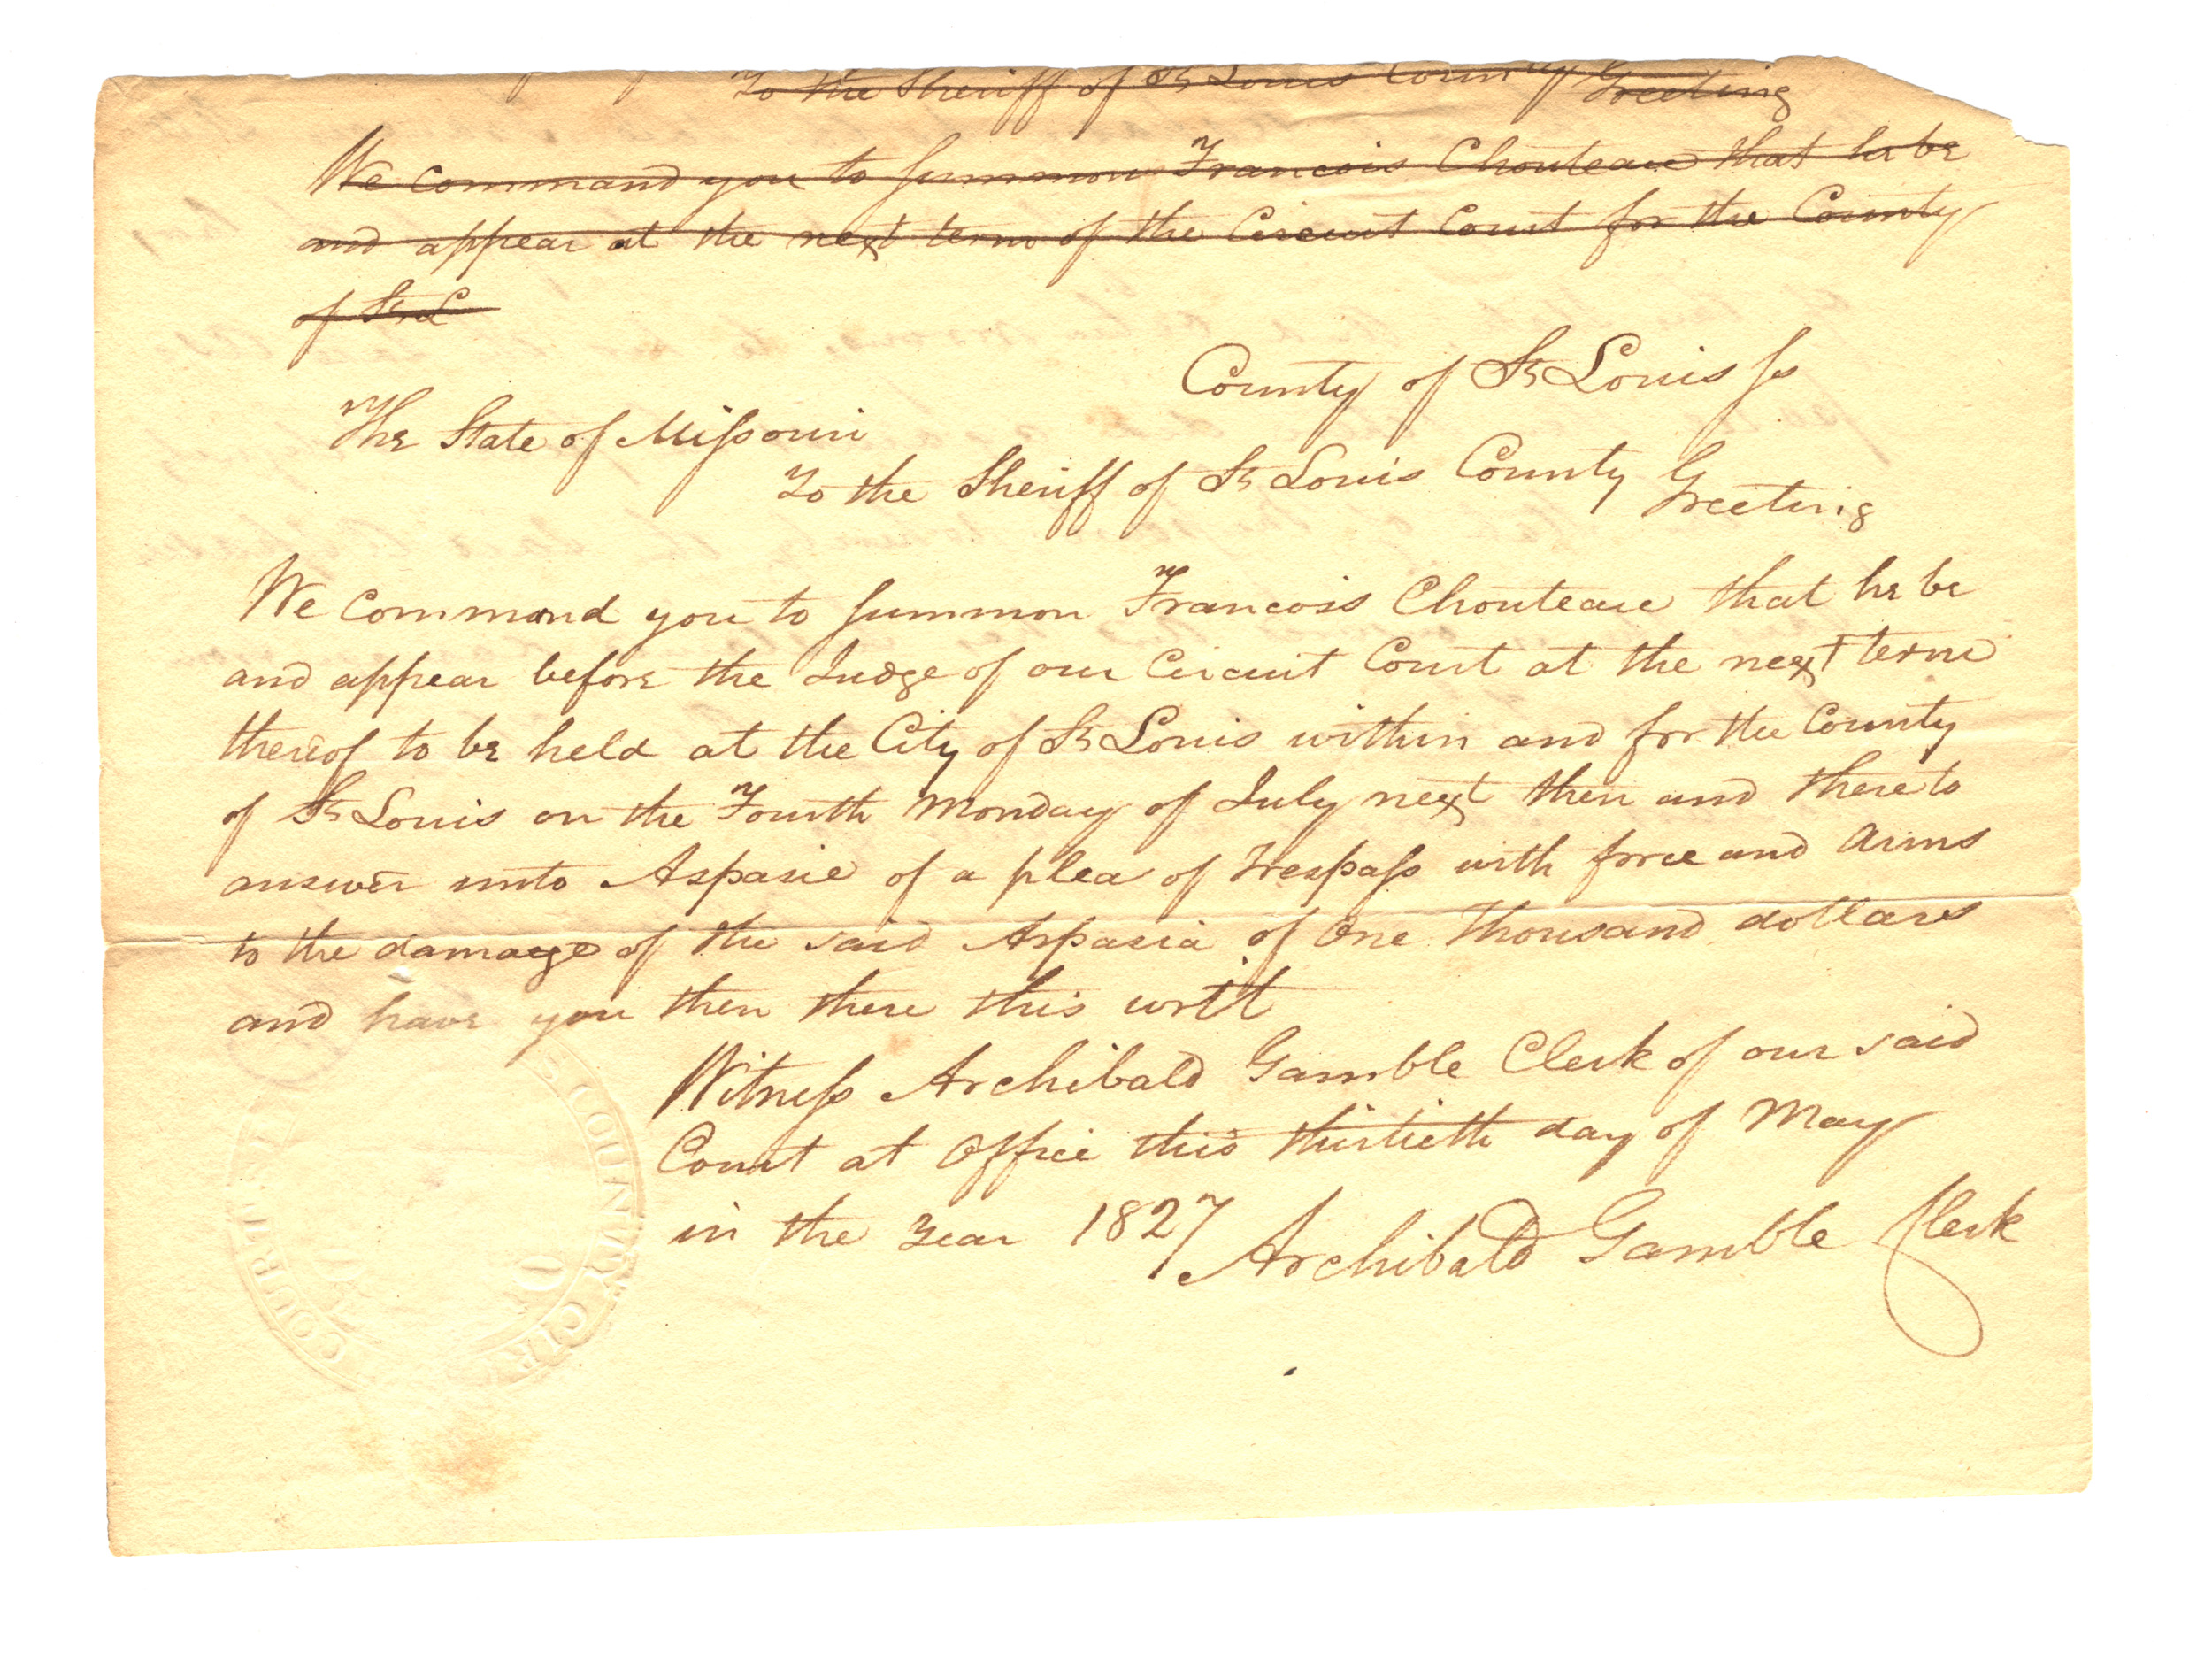 To the Sheriff of St Louis County Greeting
We command you to summon Francois Chouteau that he be
and appear at the next term of the Circuit Court for the County
of St L
County of St Louis ss
The State of Missouri
To the Sheriff of St Louis County Greeting
We command you to summon Francois Chouteau that he be
and appear before the Judge of our Circuit Court at the next term
thereof to be held at the City of St Louis within and for the County
of St Louis on the Fourth Monday of July next then and there to
answer unto Aspasie of a plea of Trespass with force and Arms
to the damage of the said Aspasia of One Thousand dollars
and have you then there this writ
Witness Archibald Gamble Clerk of our said
Court at Office this thirtieth day of May
in the Year 1827
Archibald Gamble Clerk
COUNTY CIR
COURT